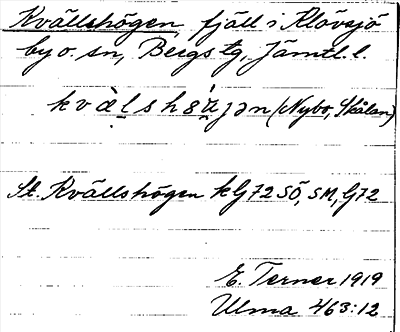 Kvällshögen, fjäll i Klövsjö
by o. sn, Bergs tg, Jämtl. l.
kvälshöʹjən (Nybo, Skålan)
St. Kvällshögen kG72SÖ, SM, G72
E. Terner 1919
Ulma 463:12